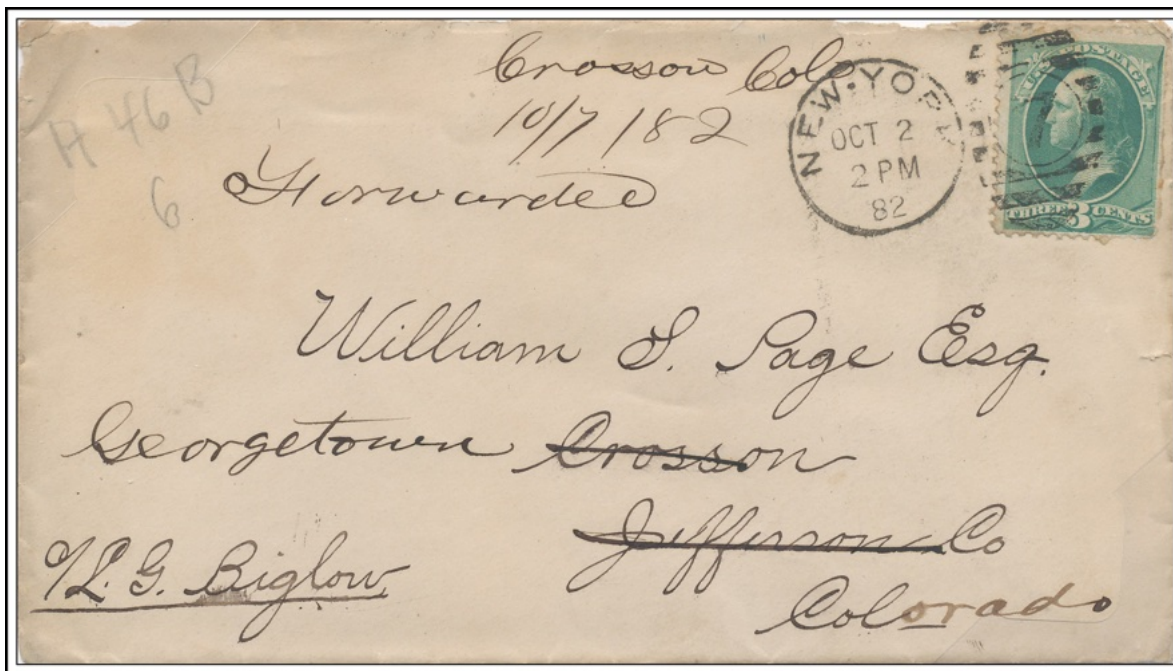 Crosson Colo
10/7/82
Forwarded
H 46 B
6
NEW-YORK
OCT 2
2 PM
82
U.S. POSTAGE
THREE 3 CENTS
William S. Page Esq.
Georgetown Crosson
Jefferson Co
Colorado
c/o L. G. Biglow